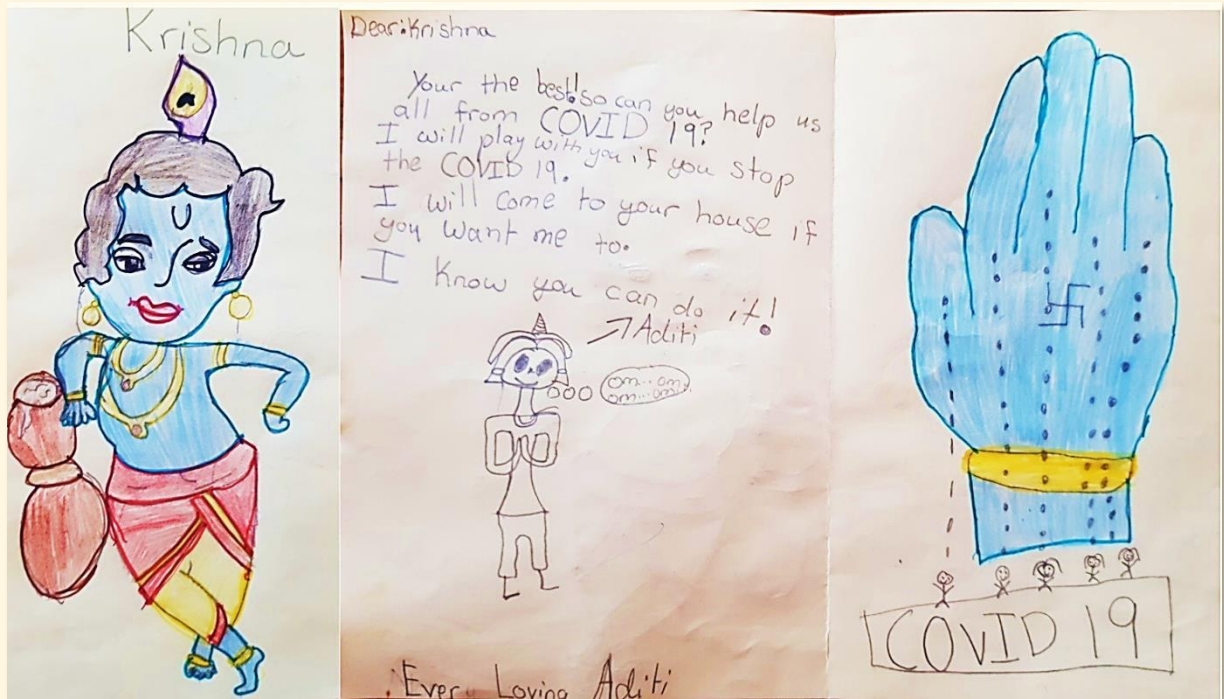 Krishna
Dear: Krishna
Your the best! so can you help us
all from COVID 19?
I will play with you if you stop
the COVID 19.
I will come to your house if
you want me to.
I know you can do it!
Aditi
om...om..
om...om..
Ever Loving Aditi
COVID 19